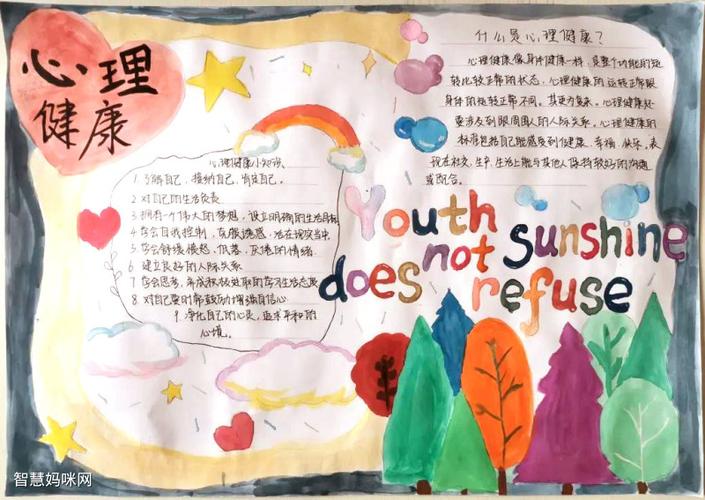 心理
健康
什么是心理健康?
心理健康像身体健康一样,是整个功能的运
转比较正常的状态,心理健康的运转正常跟
身体的运转正常不同,其更为复杂。心理健康还
要涉及到跟周围人的人际关系。心理健康的
标准包括自己能感受到健康、幸福、快乐。表
现在社交、生产、生活上能与其他人保持较好的沟通
或配合。
心理健康小知识
1.了解自己,接纳自己,肯定自己。
2 对自己的生活负责
3 拥有一个伟大的梦想,设立明确的生活目标
4 学会自我控制,克服迷惑,活在现实当中
5 学会舒缓愤怒、低落、厌倦的情绪
6 建立良好的人际关系
7 学会思考,养成积极进取的学习生活态度
8 对自己要时常鼓励,增强自信心
9.净化自己的心灵,追求平和的
心境。
Youth
not sunshine
does refuse
智慧妈咪网